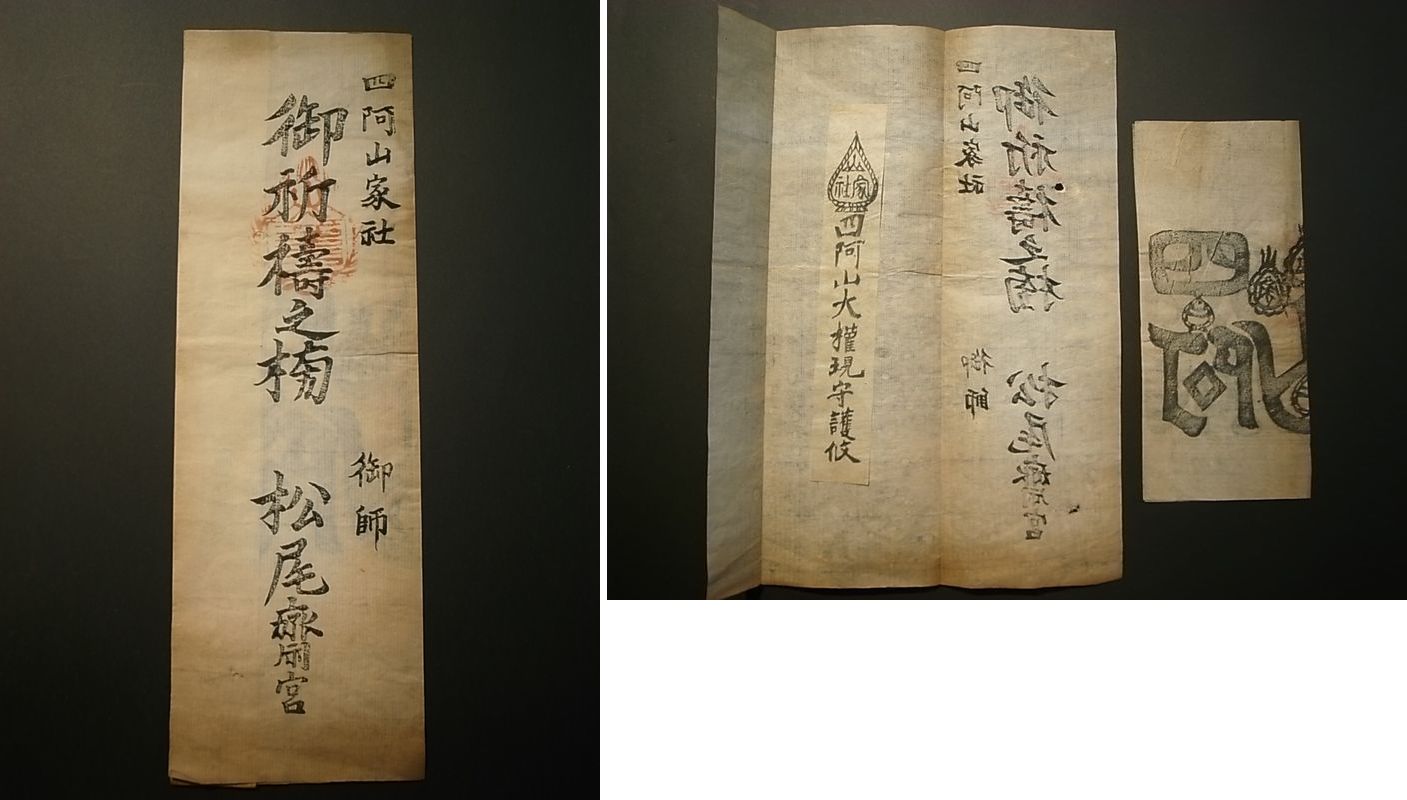 四阿山家社
御祈禱之栲
御師
松尾齋宮
山家社
四阿山大權現守護攸
四阿山家社
御祈禱之栲
御師
松尾齋宮
四
阿